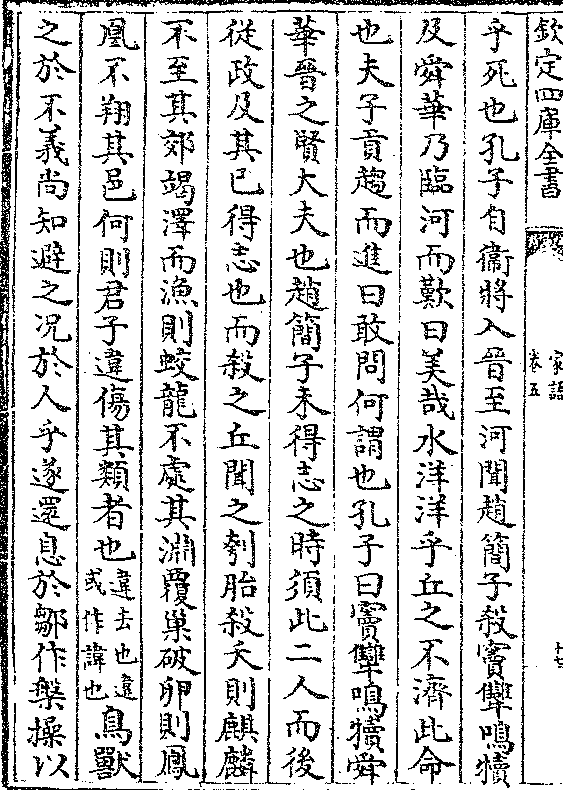 欽定四庫全書
家語
卷五
十七
乎死也孔子自衞將入晉至河聞趙簡子殺竇犨鳴犢
及舜華乃臨河而歎曰美哉水洋洋乎丘之不濟此命
也夫子貢趨而進曰敢問何謂也孔子曰竇犨鳴犢舜
華晉之賢大夫也趙簡子未得志之時須此二人而後
從政及其已得志也而殺之丘聞之刳胎殺夭則麒麟
不至其郊竭澤而漁則蛟龍不處其淵覆巢破卵則鳳
凰不翔其邑何則君子違傷其類者也違去也違或作諱也鳥獸
之於不義尚知避之况於人乎遂還息於鄒作槃操以